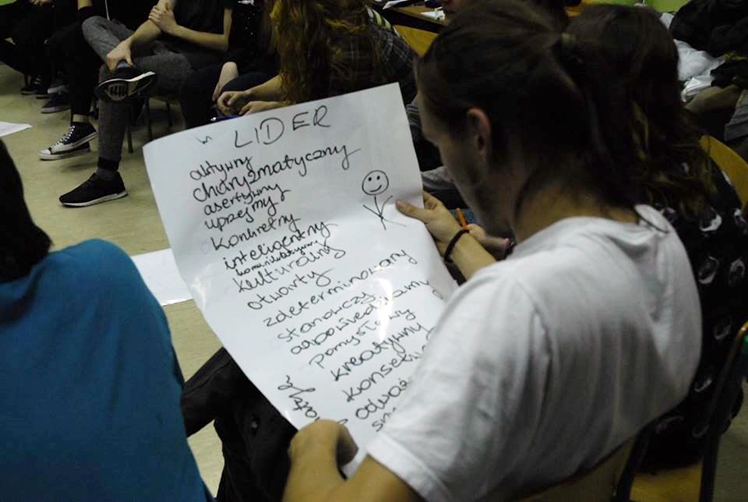 LIDER
aktywny
charyzmatyczny
asertywny
uprzejmy
konkretny
inteligentny
komunikatywny
kulturalny
otwarty
zdeterminowany
stanowczy
odpowiedzialny
pomysłowy
kreatywny